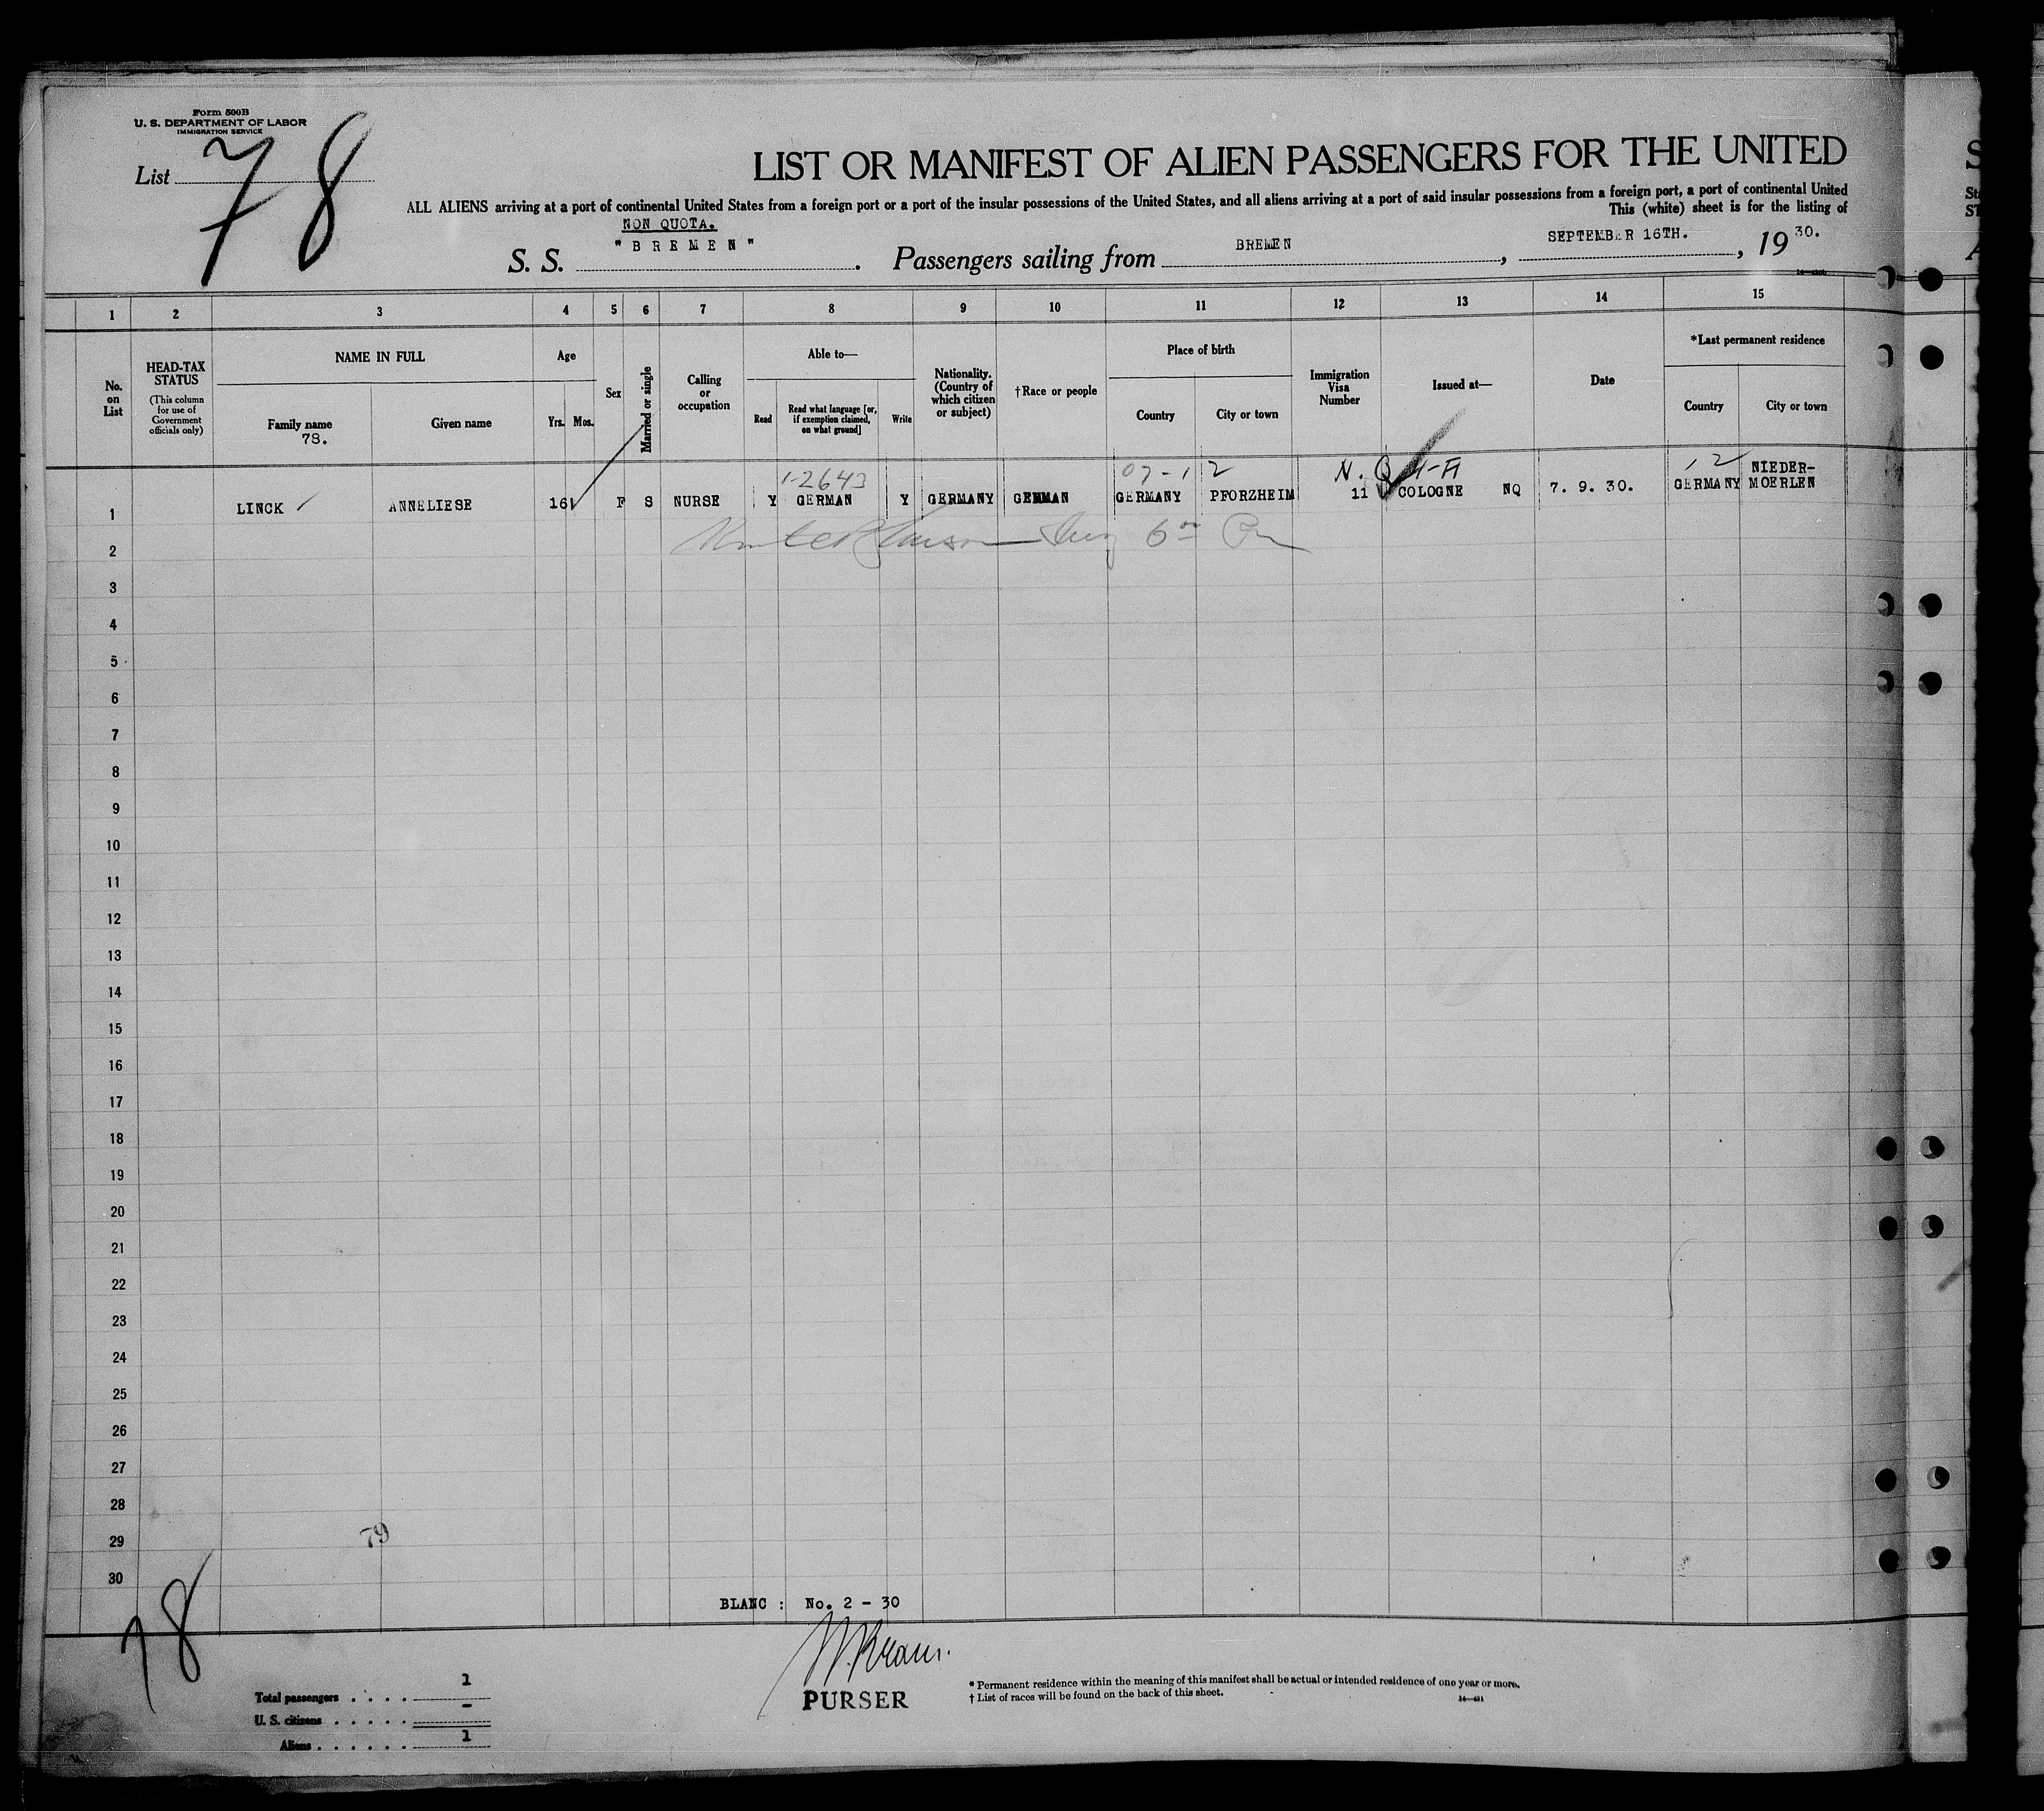 Form 500B
U. S. DEPARTMENT OF LABOR
IMMIGRATION SERVICE
List 78
LIST OR MANIFEST OF ALIEN PASSENGERS FOR THE UNITED
ALL ALIENS arriving at a port of continental United States from a foreign port or a port of the insular possessions of the United States, and all aliens arriving at a port of said insular possessions from a foreign port, a port of continental United
This (white) sheet is for the listing of
NON QUOTA.
S. S. "BREMEN". Passengers sailing from BREMEN, SEPTEMBER 16TH., 1930.
1 2 3 4 5 6 7 8 9 10 11 12 13 14 15
No. on List
HEAD-TAX STATUS
(This column for use of Government officials only)
NAME IN FULL
Family name
78.
Given name
Age
Yrs. Mos.
Sex
Married or single
Calling or occupation
Able to—
Read
Read what language [or, if exemption claimed, on what ground]
Write
Nationality. (Country of which citizen or subject)
†Race or people
Place of birth
Country
City or town
Immigration Visa Number
Issued at—
Date
*Last permanent residence
Country
City or town
1-2643 07-12 N. Q 4-A 12 NIEDER-
1 LINCK ANNELIESE 16 F S NURSE Y GERMAN Y GERMANY GERMAN GERMANY PFORZHEIM 11 COLOGNE NQ 7. 9. 30. GERMANY MOERLEN
2
3
4
5
6
7
8
9
10
11
12
13
14
15
16
17
18
19
20
21
22
23
24
25
26
27
28
29 79
30
BLANC : No. 2 - 30
78
PURSER
Total passengers . . . . 1
U. S. citizens . . . . . -
Aliens . . . . . . 1
* Permanent residence within the meaning of this manifest shall be actual or intended residence of one year or more.
† List of races will be found on the back of this sheet.
14—431